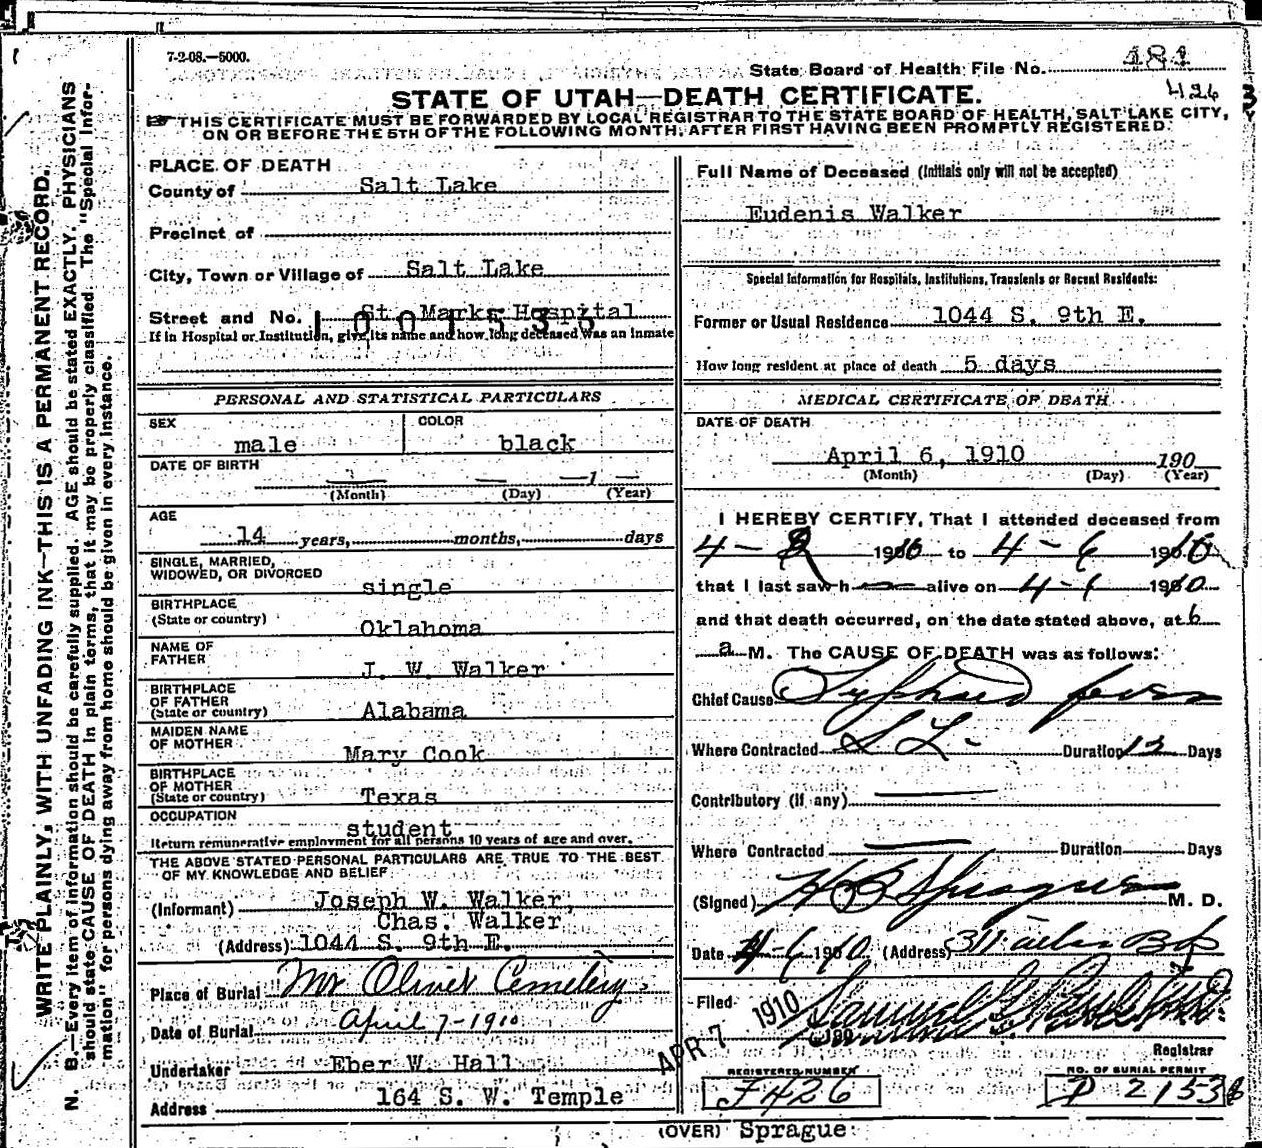 7-2-08.—5000.
State Board of Health File No. 484
426
STATE OF UTAH—DEATH CERTIFICATE.
THIS CERTIFICATE MUST BE FORWARDED BY LOCAL REGISTRAR TO THE STATE BOARD OF HEALTH, SALT LAKE CITY,
ON OR BEFORE THE 5TH OF THE FOLLOWING MONTH, AFTER FIRST HAVING BEEN PROMPTLY REGISTERED.
WRITE PLAINLY, WITH UNFADING INK—THIS IS A PERMANENT RECORD.
N. B.—Every item of information should be carefully supplied. AGE should be stated EXACTLY. PHYSICIANS
should state CAUSE OF DEATH in plain terms, that it may be properly classified. The "Special Infor-
mation" for persons dying away from home should be given in every instance.
PLACE OF DEATH
County of Salt Lake
Precinct of
City, Town or Village of Salt Lake
Street and No. St. Marks Hospital
If in Hospital or Institution, give its name and how long deceased was an inmate
PERSONAL AND STATISTICAL PARTICULARS
SEX male COLOR black
DATE OF BIRTH
(Month) (Day) (Year)
AGE
14 years, months, days
SINGLE, MARRIED,
WIDOWED, OR DIVORCED single
BIRTHPLACE
(State or country) Oklahoma
NAME OF
FATHER J. W. Walker
BIRTHPLACE
OF FATHER
(State or country) Alabama
MAIDEN NAME
OF MOTHER Mary Cook
BIRTHPLACE
OF MOTHER
(State or country) Texas
OCCUPATION student
Return remunerative employment for all persons 10 years of age and over.
THE ABOVE STATED PERSONAL PARTICULARS ARE TRUE TO THE BEST
OF MY KNOWLEDGE AND BELIEF
(Informant) Joseph W. Walker,
Chas. Walker
(Address) 1044 S. 9th E.
Place of Burial Mt Olivet Cemetery.
Date of Burial April 7-1910
Undertaker Eber W. Hall
Address 164 S. W. Temple
Full Name of Deceased (Initials only will not be accepted)
Eudenis Walker
Special Information for Hospitals, Institutions, Transients or Recent Residents:
Former or Usual Residence 1044 S. 9th E.
How long resident at place of death 5 days
MEDICAL CERTIFICATE OF DEATH
DATE OF DEATH
April 6, 1910 190
(Month) (Day) (Year)
I HEREBY CERTIFY, That I attended deceased from
4- 1910 to 4-6 1910
that I last saw h alive on 4-6 1910
and that death occurred, on the date stated above, at 6
a M. The CAUSE OF DEATH was as follows:
Chief Cause Typhoid fever
Where Contracted S L- Duration Days
Contributory (if any)
Where Contracted Duration Days
(Signed) H B Sprague M. D.
Date 4-6 1910 (Address) 311
Filed APR 7 1910 Samuel G. Paul M.D.
190
Registrar
REGISTERED NUMBER
J426
NO. OF BURIAL PERMIT
D 2153
(OVER) Sprague